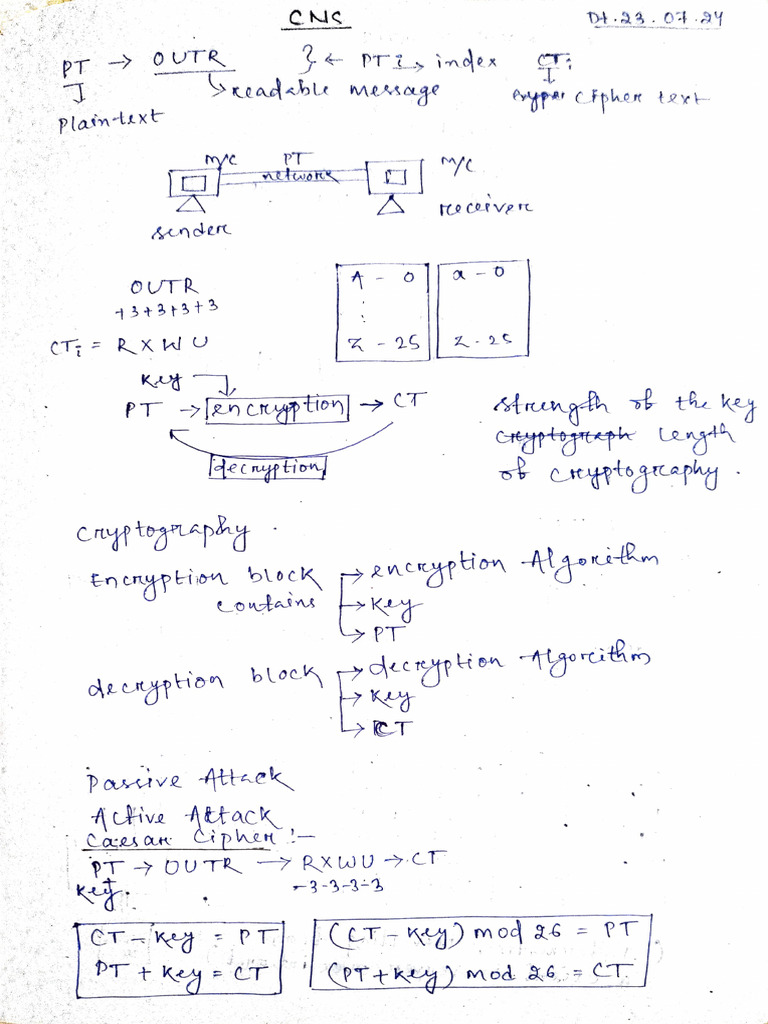 CNS
Dt. 23.07.24
PT → OUTR } ← PTi → index CTi
→ readable message
Cipher text
Plain-text
M/C PT M/C
network
receiver
sender
OUTR
+3+3+3+3
CTi = RXWU
A - 0
:
Z - 25
a - 0
z - 25
Key
PT → encryption → CT
decryption
strength of the key
cryptograph length
of cryptography.
Cryptography.
Encryption block → encryption Algorithm
contains → Key
→ PT
decryption block → decryption Algorithm
→ Key
→ CT
Passive Attack
Active Attack
Caesar Cipher :-
PT → OUTR → RXWU → CT
Key. -3-3-3-3
CT - Key = PT
PT + Key = CT
(CT - Key) mod 26 = PT
(PT + Key) mod 26 = CT